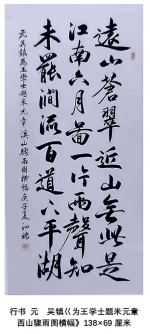 遠山蒼翠近山無此是
江南六月圖一片雨聲知
未罷澗流百道下平湖
元吳鎮為王學士題米元章溪山驟雨圖横幅庚子夏
行书 元 吴镇《为王学士题米元章
西山骤雨图横幅》138×69 厘米